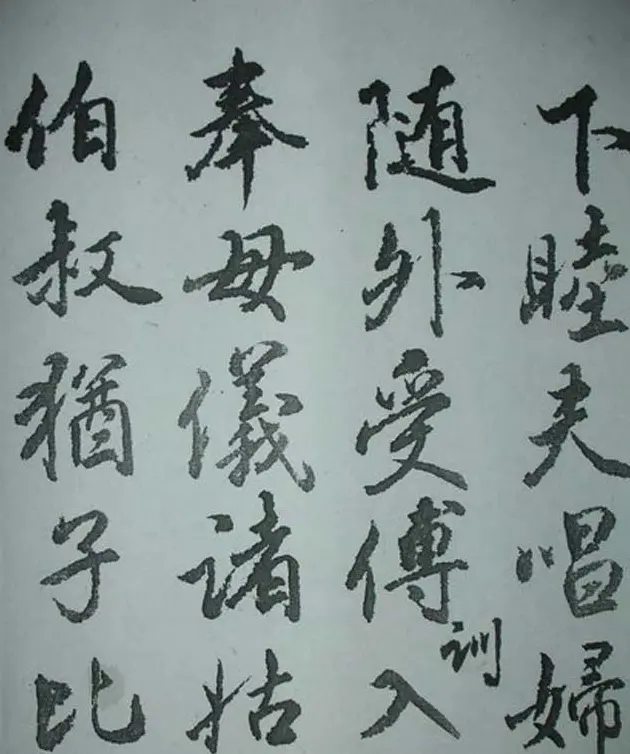 下睦夫唱婦
随外受傅訓入
奉母儀諸姑
伯叔猶子比